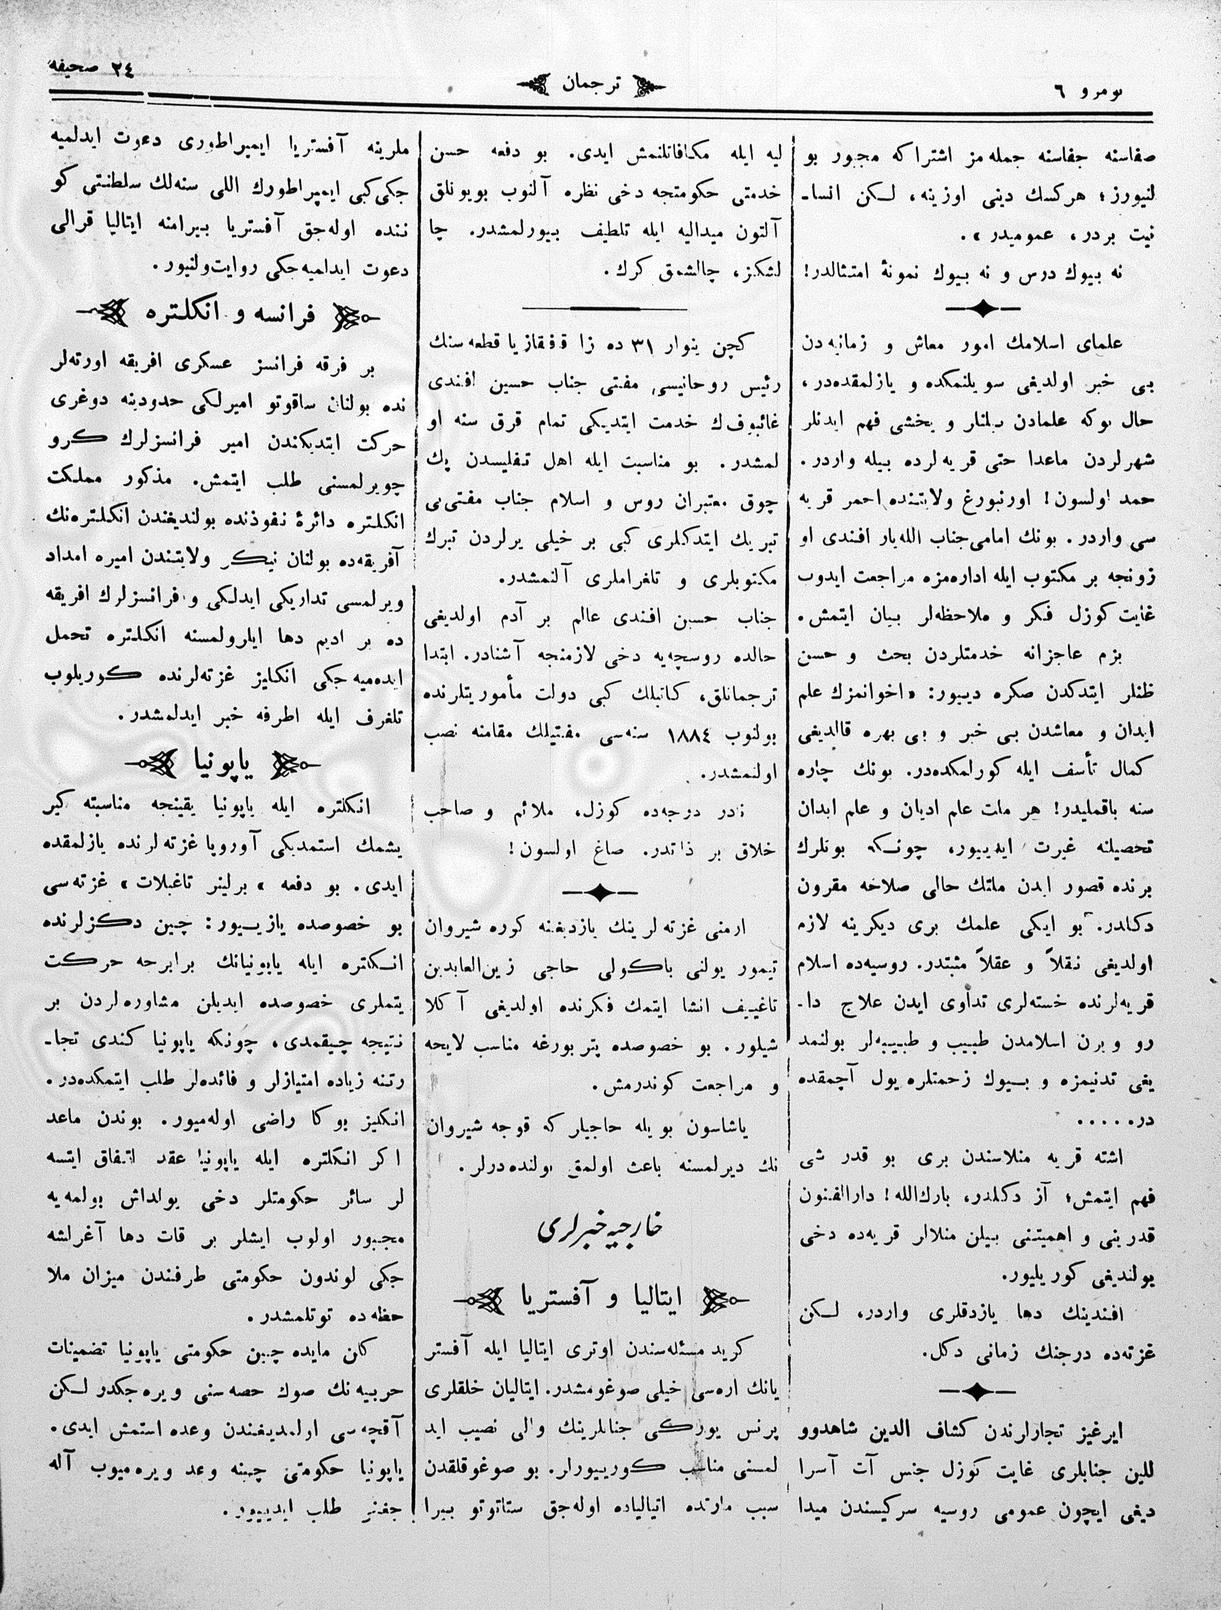 نومرو ٦
ترجمان
٢٤ صحيفه
صفاسنه جفاسنه جمله‌مز اشتراكه مجبور بو
لنيورز؛ هركسك دينى اوزينه، لكن انسا-
نيت بردر، عموميدر».
نه بيوك درس و نه بيوك نمونۀ امتثالدر!
علماى اسلامك امور معاش و زمانه‌دن
بى خبر اولديغى سويلنمكده و يازلمقده‌در،
حال بوكه علمادن بيلنار و يخشى فهم ايدنلر
شهرلردن ماعدا حتى قريه‌لرده بيله واردر.
حمد اولسون! اورنبورغ ولايتنده احمر قريه
سى واردر. بونك امامى جناب الله‌يار افندى او
زونجه بر مكتوب ايله اداره‌مزه مراجعت ايدوب
غايت كوزل فكر و ملاحظه‌لر بيان ايتمش.
بزم عاجزانه خدمتلردن بحث و حسن
ظنلر ايتدكدن صكره ديبور: «اخوانمزك علم
ابدان و معاشدن بى خبر و بى بهره قالديغى
كمال تأسف ايله كورلمكده‌در. بونك چاره
سنه باقمليدر! هر ملت علم اديان و علم ابدان
تحصيلنه غيرت ايديبور، چونكه بونلرك
برنده قصور ايدن ملتك حالى صلاحه مقرون
دكلدر. بو ايكى علمك برى ديكرينه لازم
اولديغى نقلاً و عقلاً مثبتدر. روسيه‌ده اسلام
قريه‌لرنده خسته‌لرى تداوى ايدن علاج دا-
رو ويرن اسلامدن طبيب و طبيبه‌لر بولنمد
يغى تدنيمزه و بيوك زحمتلره يول آچمقده
در.....
اشته قريه منلاسندن برى بو قدر شى
فهم ايتمش؛ آز دكلدر، بارك‌الله! دارالفنون
قدرينى و اهميتنى بيلن منلالر قريه‌ده دخى
بولنديغى كوريليور.
افندينك دها يازدقلرى واردر، لكن
غزته‌ده درجنك زمانى دكل.
ايرغيز تجارلرندن كشاف الدين شاهدوو
للين جنابلرى غايت كوزل جنس آت آسرا
ديغى ايچون عمومى روسيه سركيسندن ميدا
ليه ايله مكافاتلنمش ايدى. بو دفعه حسن
خدمتى حكومتجه دخى نظره آلنوب بويونلق
آلتون ميداليه ايله تلطيف بيورلمشدر. چا
لشكز، چالشمق كرك.
كچن ينوار ٣١ ده زا قفقازيا قطعه‌سنك
رئيس روحانيسى مفتى جناب حسين افندى
غائبوف‌ك خدمت ايتديكى تمام قرق سنه او
لمشدر. بو مناسبت ايله اهل تفليسدن پك
چوق معتبران روس و اسلام جناب مفتى‌يى
تبريك ايتدكلرى كبى بر خيلى يرلردن تبرك
مكتوبلرى و تلغراملرى آلنمشدر.
جناب حسين افندى عالم بر آدم اولديغى
حالده روسچه‌يه دخى لازمنجه آشنادر. ابتدا
ترجمانلق، كاتبلك كبى دولت مأموريتلرنده
بولنوب ١٨٨٤ سنه‌سى مفتيلك مقامنه نصب
اولنمشدر.
درجه‌ده كوزل، ملائم و صاحب
خلاق بر ذاتدر. صاغ اولسون!
ارمنى غزته‌لرينك يازديغنه كوره شيروان
تيمور يولنى باكولى حاجى زين‌العابدين
تاغييف انشا ايتمك فكرنده اولديغى آكلا
شيلور. بو خصوصده پتربورغه مناسب لايحه
و مراجعت كوندرمش.
ياشاسون بويله حاجيلر كه قوجه شيروان
نك ديرلمسنه باعث اولمق يولنده‌درلر.
خارجيه خبرلرى
ايتاليا و آفستريا
كريد مسئله‌سندن اوترى ايتاليا ايله آفستر
يانك اره‌سى خيلى صوغومشدر. ايتاليان خلقلرى
پرنس يوركى جنابلرينك والى نصيب ايد
لمسنى مناسب كوريبورلر. بو صوغوقلقدن
سبب مارتده اتيالياده اوله‌جق ستاتوتو بيرا
ملرينه آفستريا ايمپراطورى دعوت ايدلميه
جكى كبى ايمپراطورك اللى سنه‌لك سلطنتى كو
ننده اوله‌جق آفستريا بيرامنه ايتاليا قرالى
دعوت ايدلميه‌جكى روايت‌ولنيور.
فرانسه و انكلتره
بر فرقه فرانسز عسكرى افريقه اورته‌لر
نده بولنان ساقوتو اميرلكى حدودينه دوغرى
حركت ايتديكندن امير فرانسزلرك كرو
چويرلمسنى طلب ايتمش. مذكور مملكت
انكلتره دائرۀ نفوذنده بولنديغندن انكلتره‌نك
آفريقه‌ده بولنان نيكر ولايتندن اميره امداد
ويرلمسى تداريكى ايدلكى و فرانسزلرك افريقه
ده بر اديم دها ايلرولمسنه انكلتره تحمل
ايده‌ميه‌جكى انكليز غزته‌لرنده كوريلوب
تلغرف ايله اطرفه خبر ايدلمشدر.
ياپونيا
انكلتره ايله ياپونيا يقينجه مناسبته كير
يشمك استمديكى آوروپا غزته‌لرنده يازلمقده
ايدى. بو دفعه «برلينر تاغبلات» غزته‌سى
بو خصوصده يازيبور: چين دكزلرنده
انكلتره ايله ياپونيانك برابرجه حركت
يتملرى خصوصده ايديلن مشاوره‌لردن بر
نتيجه چيقمدى، چونكه ياپونيا كندى تجا-
رتنه زياده امتيازلر و فائده‌لر طلب ايتمكده‌در.
انكليز بوكا راضى اوله‌ميور. بوندن ماعد
اكر انكلتره ايله ياپونيا عقد اتفاق ايتسه
لر سائر حكومتلر دخى يولداش بولمه‌يه
مجبور اولوب ايشلر بر قات دها آغرلشه
جكى لوندون حكومتى طرفندن ميزان ملا
حظه‌ده توتلمشدر.
كان مايده چين حكومتى ياپونيا تضمينات
حربيه‌نك صوك حصه‌سنى ويره‌جكدر لكن
آقچه‌سى اولمديغندن وعده استمش ايدى.
ياپونيا حكومتى چينه وعد ويره‌ميوب آله
جغنى طلب ايدييور.